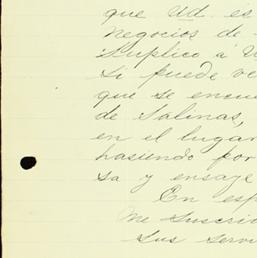 que Ud. es
negocios de
Suplico á
Si puede
que se
de Salinas,
en el lugar
hasiendo por
sa y ensaye
En
Me suscri
Sus